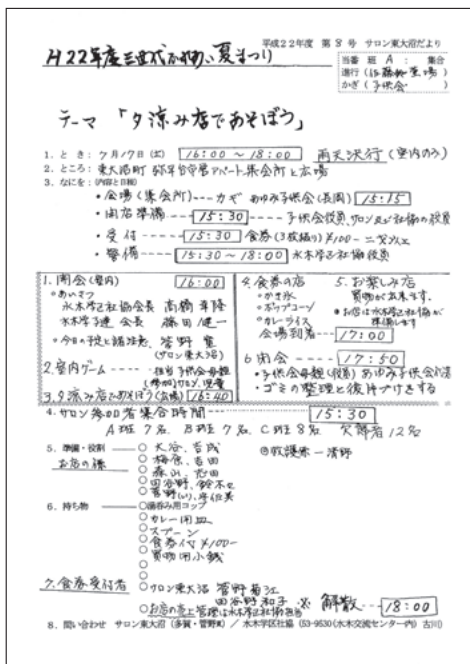 平成22年度 第8号 サロン東大沼だより
H22年度三世代ふれあい夏まつり
当番 班 A : 集合
進行(佐藤 会場)
かぎ(子供会)
テーマ 「夕涼み店であそぼう」
1. とき: 7月17日(土) 16:00〜18:00 雨天決行(室内のみ)
2. ところ: 東大沼町 弥平台守屋アパート集会所と広場
3. なにを:(内容と日程)
・会場(集会所)---カギ あゆみ子供会(長岡) 15:15
・開店準備---15:30---子供会役員、サロン及び社協の役員
・受付---15:30 食券(3枚綴り)¥100-
・警備---15:30〜18:00 水木学区社協役員
1. 開会(室内) 16:00
○あいさつ
水木学区社協会長 高橋幸隆
水木学子連 会長 篠田健一
○今日の予定と諸注意、菅野 寛
(サロン東大沼)
2. 室内ゲーム---担当 子供会母親
(参加)サロン、児童
3. 夕涼み店であそぼう(広場) 16:40
4. 食券の店
○かき氷
○ポップコーン
○カレーライス
会場到着---17:00
5. お楽しみ店
買物が出来ます。
※お店は水木学区社協が準備します
6. 閉会---17:50
・子供会母親(役員) あゆみ子供会
・ゴミの整理と後片づけをする
4. サロン参加者集合時間---15:30
A班 7名 B班 7名 C班 8名 欠席者 12名
5. 準備・役割---○大谷、吉成
お店の係 ○梅原、吉田
○森山、志田
○田谷野、鈴木
○菅野
◎救護係ー清野
6. 持ち物---○湯呑み用コップ
○カレー用皿
○スプーン
○食券代 ¥100-
○買物用小銭
○
○
7. 食券受付者 ○サロン東大沼 菅野菊江
田谷野和子 ※ 解散---18:00
○お店の売上管理は水木学区社協担当
8. 問い合わせ サロン東大沼(多賀・菅野)/水木学区社協(53-9530(水木交流センター内) 古川)